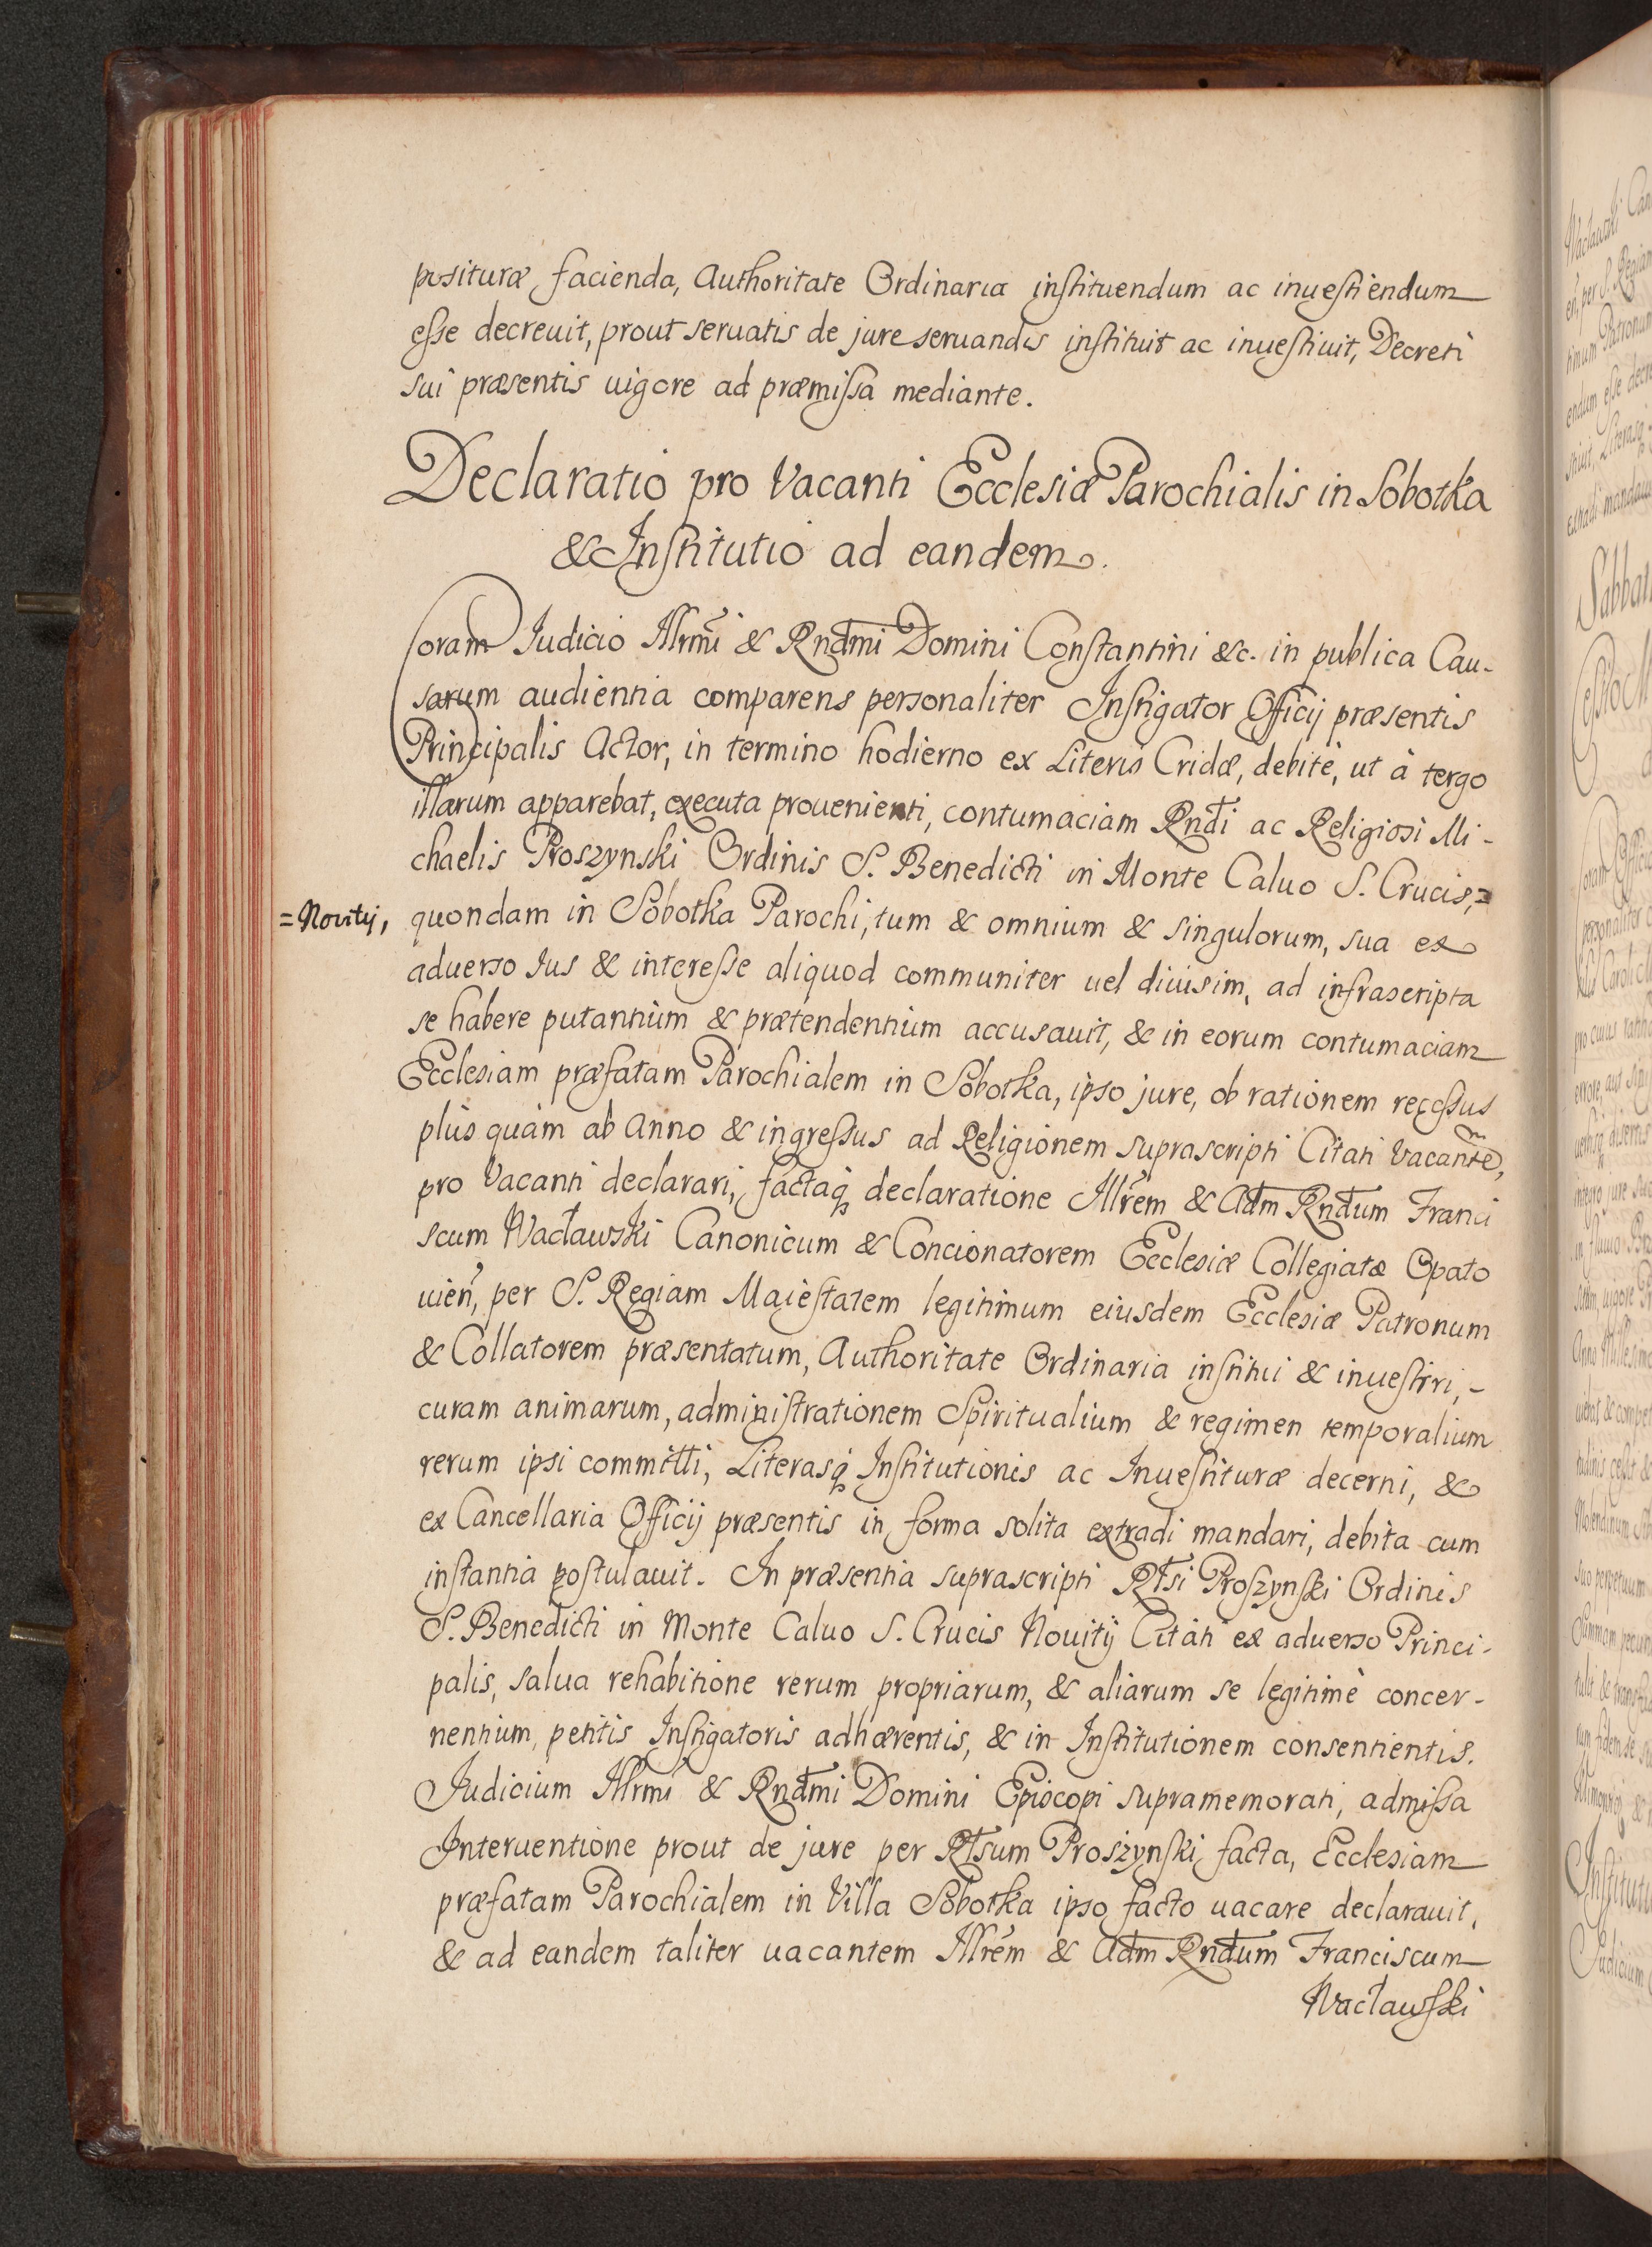 posituræ facienda, Authoritate Ordinaria instituendum ac inuestiendum
esse decreuit, prout seruatis de jure seruandis instituit ac inuestiuit, Decreti
sui præsentis uigore ad præmissa mediante.
Declaratio pro Vacanti Ecclesiæ Parochialis in Sobotka
& Institutio ad eandem.
Coram Judicio Illrmi & Rndmi Domini Constantini &c. in publica Cau-
sarum audientia comparens personaliter Instigator Officij præsentis
Principalis Actor, in termino hodierno ex Literis Cridæ, debitè, ut à tergo
illarum apparebat, executa prouenienti, contumaciam Rndi ac Religiosi Mi-
chaelis Proszynski Ordinis S. Benedicti in Monte Caluo S. Crucis,=
=Nouitij, quondam in Sobotka Parochi, tum & omnium & singulorum, sua ex
aduerso Jus & interesse aliquod communiter uel diuisim, ad infrascripta
se habere putantium & prætendentium accusauit, & in eorum contumaciam
Ecclesiam præfatam Parochialem in Sobotka, ipso jure, ob rationem recessus
plus quàm ab Anno & ingressus ad Religionem suprascripti Citati Vacantem,
pro Vacanti declarari, factaq declaratione Illrem & Adm Rndum Franci
scum Wacławski Canonicum & Concionatorem Ecclesiæ Collegiatæ Opato
uien, per S. Regiam Maiestatem legitimum eiusdem Ecclesiæ Patronum
& Collatorem præsentatum, Authoritate Ordinaria institui & inuestiri,-
curam animarum, administrationem Spiritualium & regimen temporalium
rerum ipsi committi, Literasq Institutionis ac Inuestituræ decerni, &
ex Cancellaria Officij præsentis in forma solita extradi mandari, debita cum
instantia postulauit. In præsentia suprascripti Rtsi Proszynski Ordinis
S. Benedicti in Monte Caluo S. Crucis Nouitij Citati ex aduerso Princi-
palis, salua rehabitione rerum propriarum, & aliarum se legitimè concer-
nentium, petitis Instigatoris adhærentis, & in Institutionem consentientis.
Judicium Illrmi & Rndmi Domini Episcopi supramemorati, admissa
Interuentione prout de jure per Rtsum Proszynski facta, Ecclesiam
præfatam Parochialem in Villa Sobotka ipso facto uacare declarauit,
& ad eandem taliter uacantem Illrem & Adm Rndum Franciscum
Wacławski